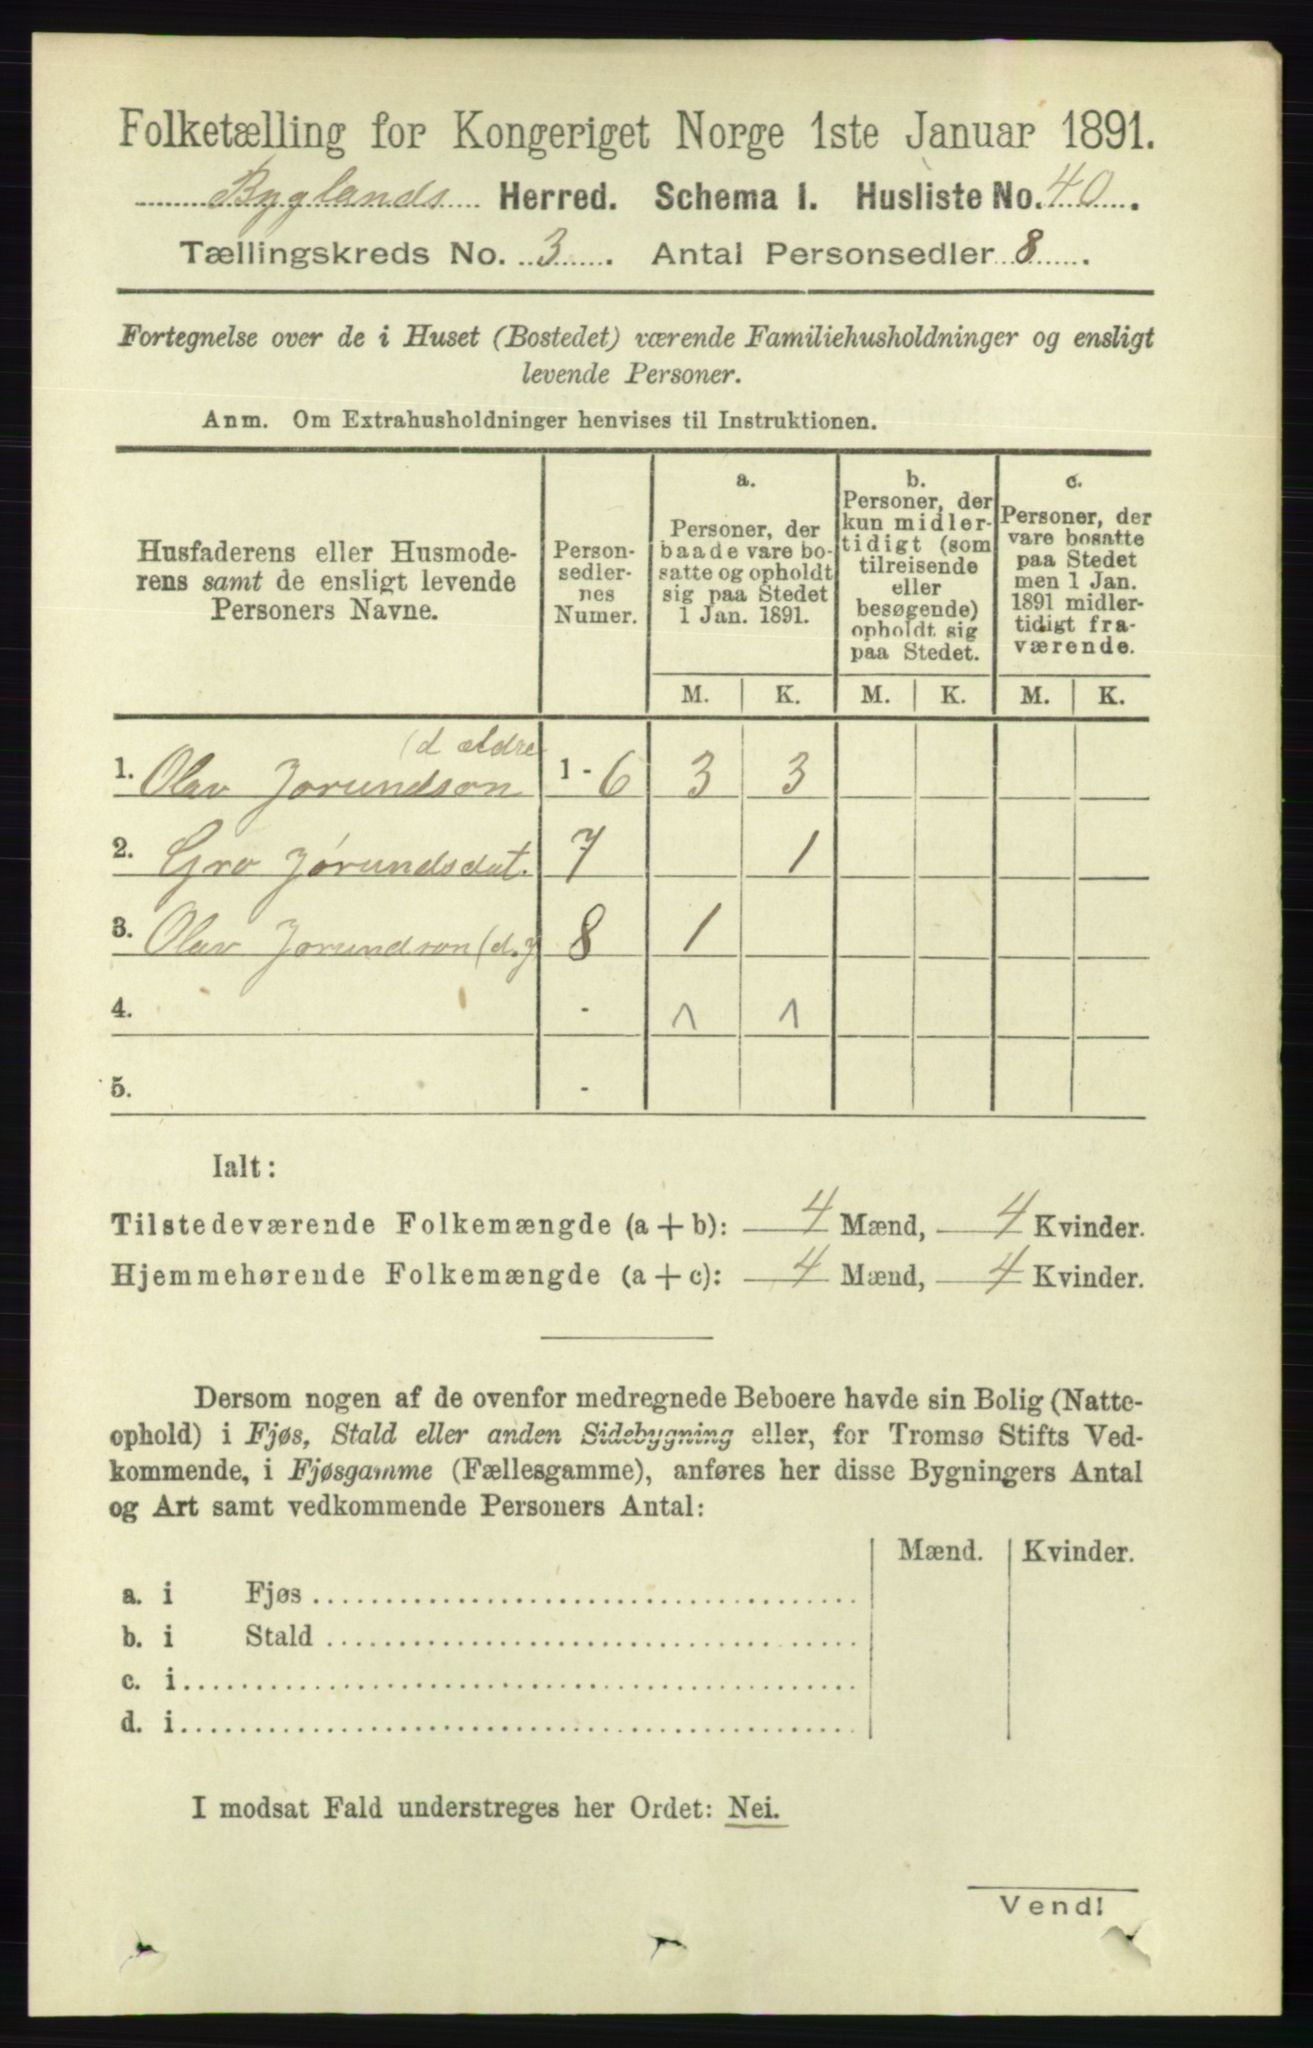 Folketælling for Kongeriget Norge 1ste Januar 1891.
Byglands Herred. Schema 1. Husliste No. 40.
Tællingskreds No. 3. Antal Personsedler 8.
Fortegnelse over de i Huset (Bostedet) værende Familiehusholdninger og ensligt
levende Personer.
Anm. Om Extrahusholdninger henvises til Instruktionen.
Husfaderens eller Husmode-
rens samt de ensligt levende
Personers Navne.
Person-
sedler-
nes
Numer.
a.
Personer, der
baade vare bo-
satte og opholdt
sig paa Stedet
1 Jan. 1891.
b.
Personer, der
kun midler-
tidigt (som
tilreisende
eller
besøgende)
opholdt sig
paa Stedet.
c.
Personer, der
vare bosatte
paa Stedet
men 1 Jan.
1891 midler-
tidigt fra-
værende.
M. K. M. K. M. K.
(d ældre
1. Olav Jorundson 1 - 6 3 3
2. Gro Jørundsdat. 7 1
3. Olav Jorundson (d. y 8 1
4. - 1 1
5. -
Ialt:
Tilstedeværende Folkemængde (a + b): 4 Mænd, 4 Kvinder.
Hjemmehørende Folkemængde (a + c): 4 Mænd, 4 Kvinder.
Dersom nogen af de ovenfor medregnede Beboere havde sin Bolig (Natte-
ophold) i Fjøs, Stald eller anden Sidebygning eller, for Tromsø Stifts Ved-
kommende, i Fjøsgamme (Fællesgamme), anføres her disse Bygningers Antal
og Art samt vedkommende Personers Antal:
Mænd. Kvinder.
a. i Fjøs
b. i Stald
c. i
d. i
I modsat Fald understreges her Ordet: Nei.
Vend!